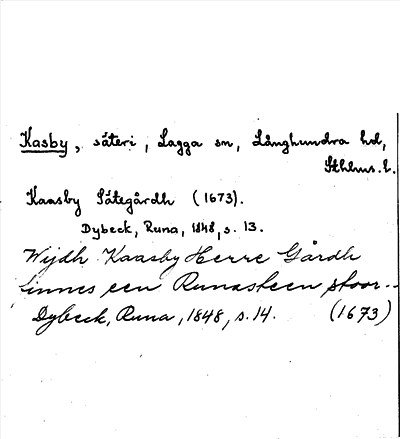 Kasby, säteri, Lagga sn, Långhundra hd,
Sthlms. l.
Kaasby Sätegårdh (1673).
Dybeck, Runa, 1848, s. 13.
Wijdh Kaasby Herre Gårdh
finnes een Runasteen stoor--
Dybeck, Runa, 1848, s. 14. (1673)